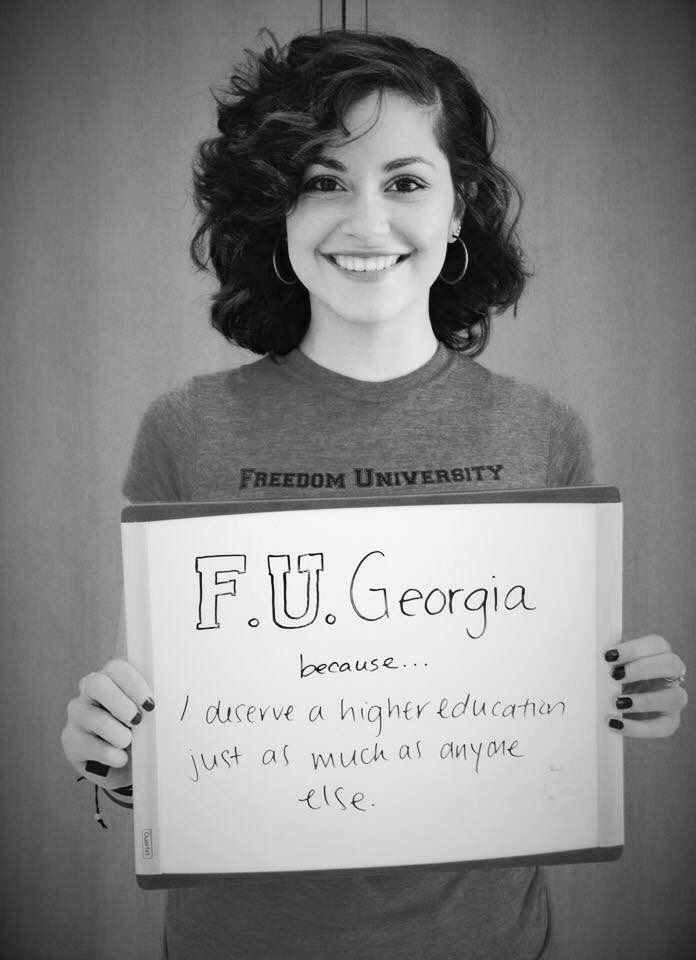 FREEDOM UNIVERSITY
F.U. Georgia
because...
I deserve a higher education
just as much as anyone
else.
Quartet